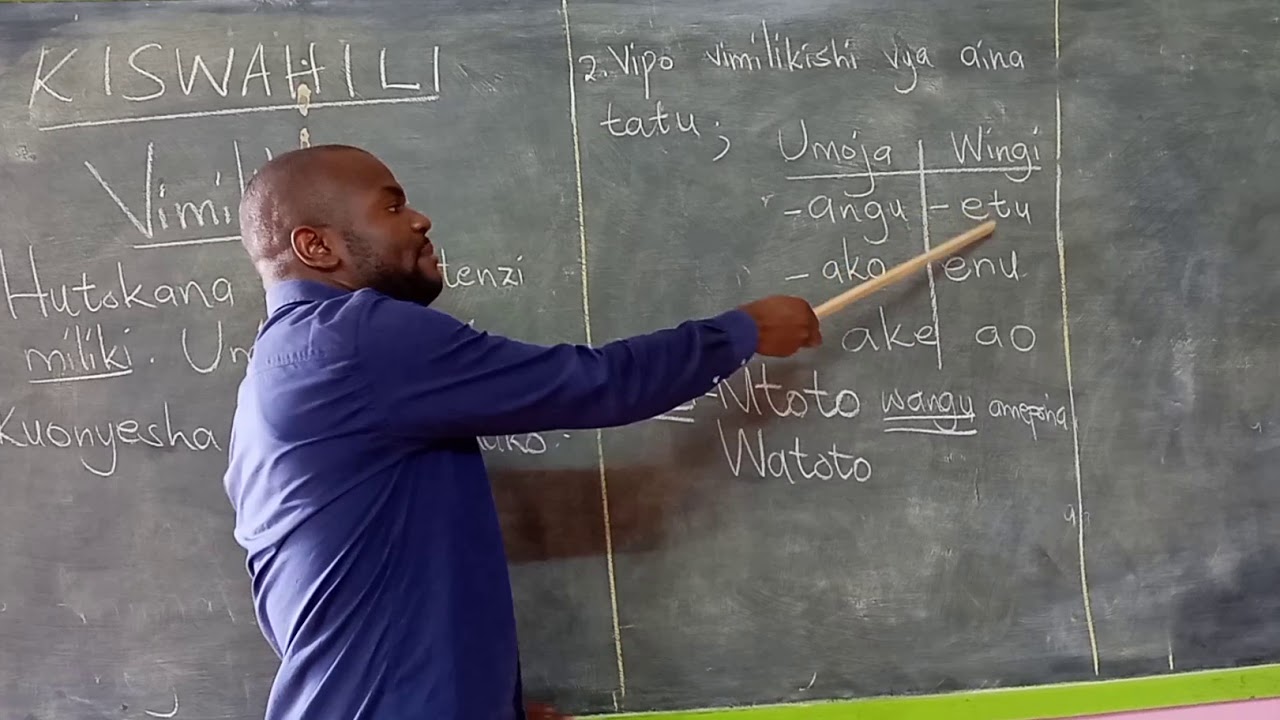 KISWAHILI
Hutokana tenzi
miliki.
Kuonyesha
2. Vipo vimilikishi vya aina
tatu;
Umoja Wingi
-angu -etu
-ako enu
ake ao
-Mtoto wangu amepona
Watoto